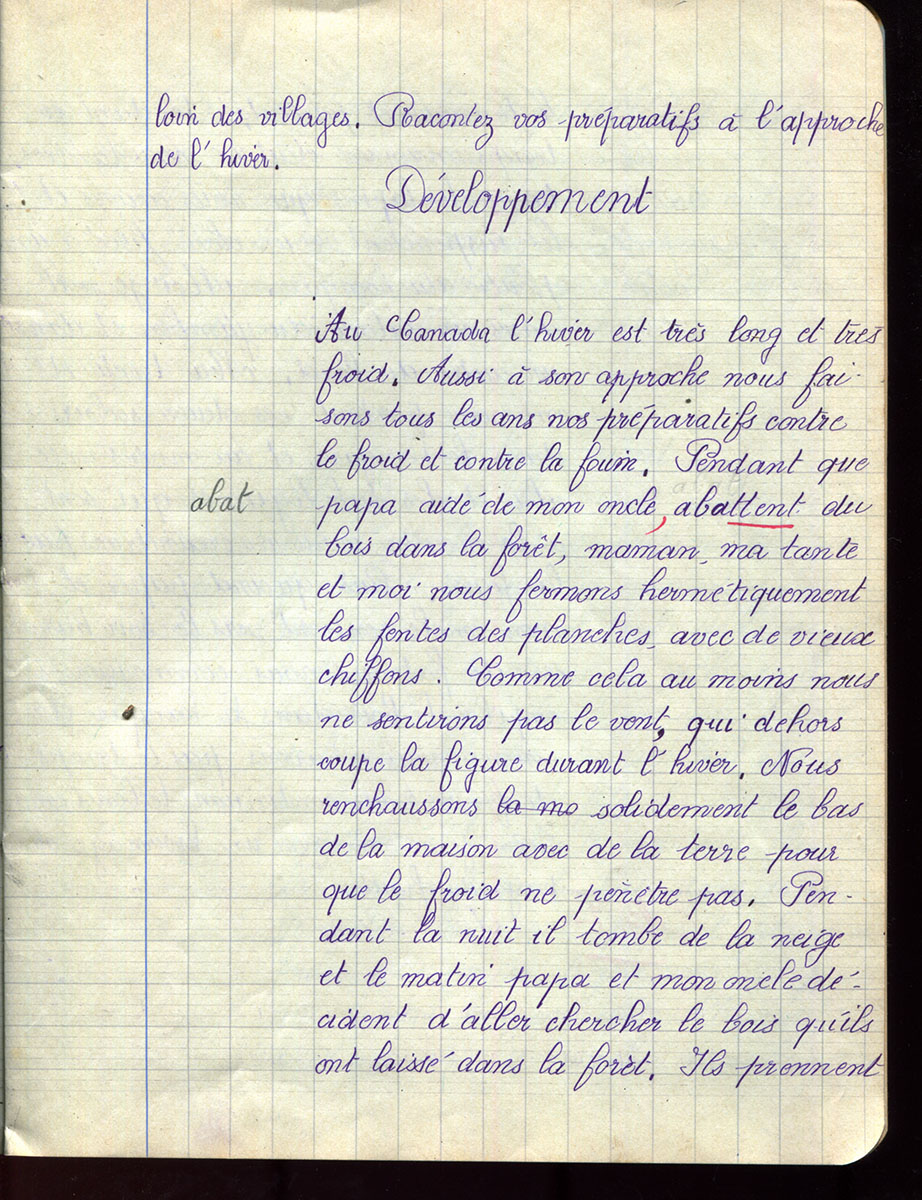 loin des villages. Racontez vos préparatifs à l'approche
de l'hiver.
Développement
Au Canada l'hiver est très long et très
froid. Aussi à son approche nous fai-
sons tous les ans nos préparatifs contre
le froid et contre la faim. Pendant que
abat papa aidé de mon oncle, abattent du
bois dans la forêt, maman, ma tante
et moi nous fermons hermétiquement
les fentes des planches, avec de vieux
chiffons. Comme cela au moins nous
ne sentirons pas le vent, qui dehors
coupe la figure durant l'hiver. Nous
renchaussons la mo solidement le bas
de la maison avec de la terre pour
que le froid ne pénètre pas. Pen-
dant la nuit il tombe de la neige
et le matin papa et mon oncle dé-
cident d'aller chercher le bois qu'ils
ont laissé dans la forêt. Ils prennent